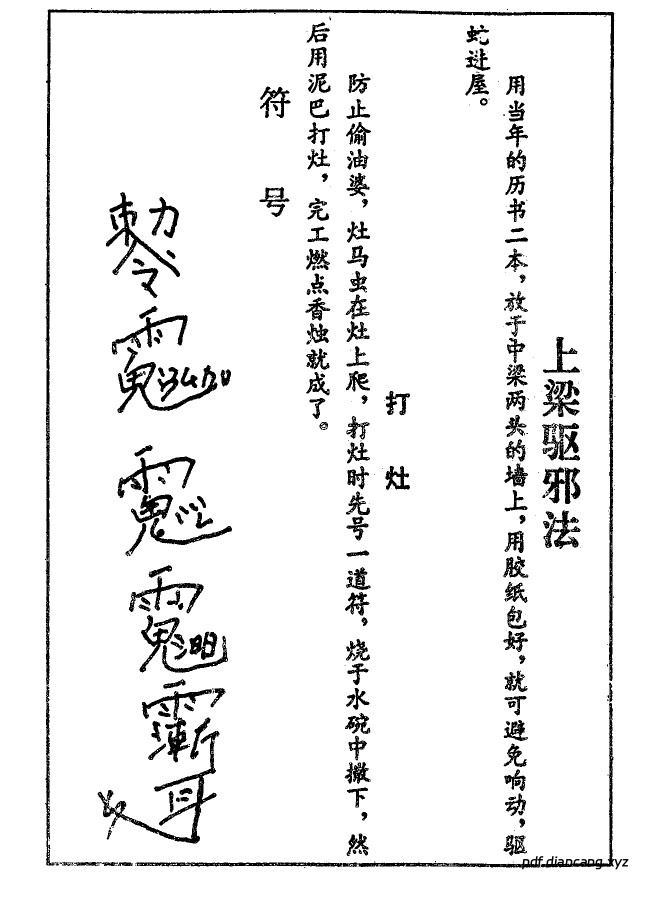 上梁驱邪法
用当年的历书二本，放于中梁两头的墙上，用胶纸包好，就可避免响动，驱
蛇进屋。
打灶
防止偷油婆，灶马虫在灶上爬，打灶时先号一道符，烧于水碗中撒下，然
后用泥巴打灶，完工燃点香烛就成了。
符号
pdf.diancang.xyz